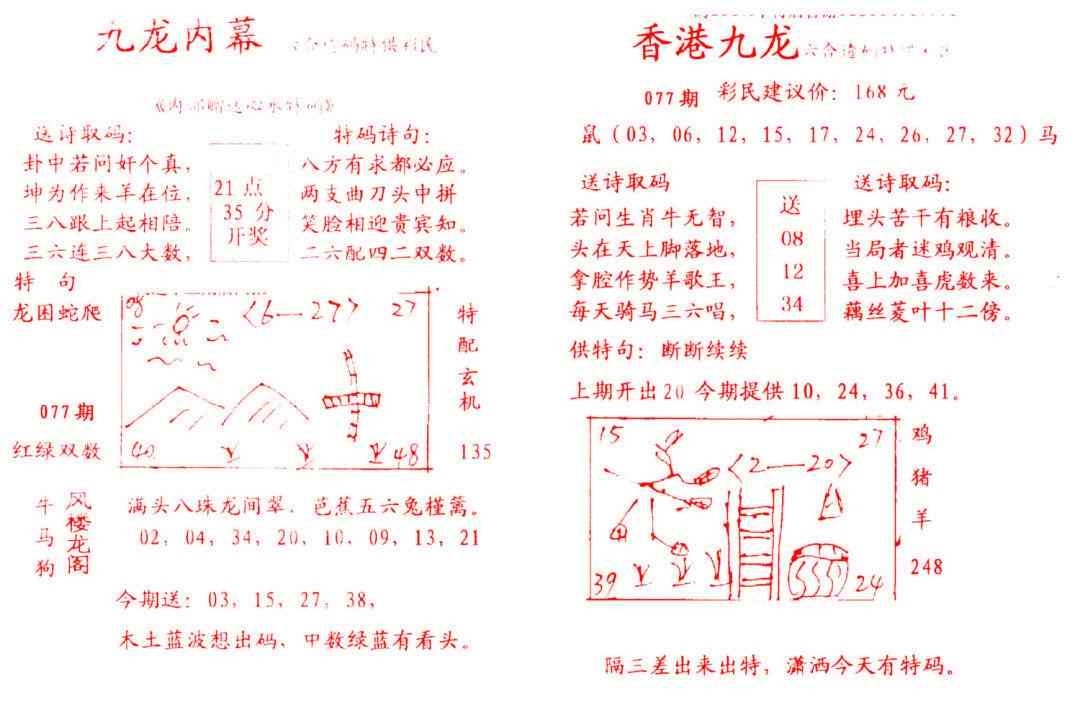 九龙内幕
送诗取码：
卦中若问奸个真，
坤为作来羊在位，
三八跟上起相陪。
三六连三八大数，
21点
35分
开奖
特码诗句：
八方有求都必应。
两支曲刀头中拼
笑脸相迎贵宾知。
二六配四二双数。
特 句
龙困蛇爬
077期
红绿双数
09
<6—27>
27
40
48
特配玄机
135
牛马狗
风楼龙阁
满头八珠龙间翠．芭蕉五六兔槿篱。
02，04，34，20，10，09，13，21
今期送：03，15，27，38，
木土蓝波想出码、中数绿蓝有看头。
香港九龙
077期 彩民建议价：168元
鼠（03，06，12，15，17，24，26，27，32）马
送诗取码
若问生肖牛无智，
头在天上脚落地，
拿腔作势羊歌王，
每天骑马三六唱，
送
08
12
34
送诗取码：
埋头苦干有粮收。
当局者迷鸡观清。
喜上加喜虎数来。
藕丝菱叶十二傍。
供特句：断断续续
上期开出20 今期提供10，24，36，41。
15
27
<2—20>
39
24
鸡猪羊
248
隔三差出来出特，潇洒今天有特码。